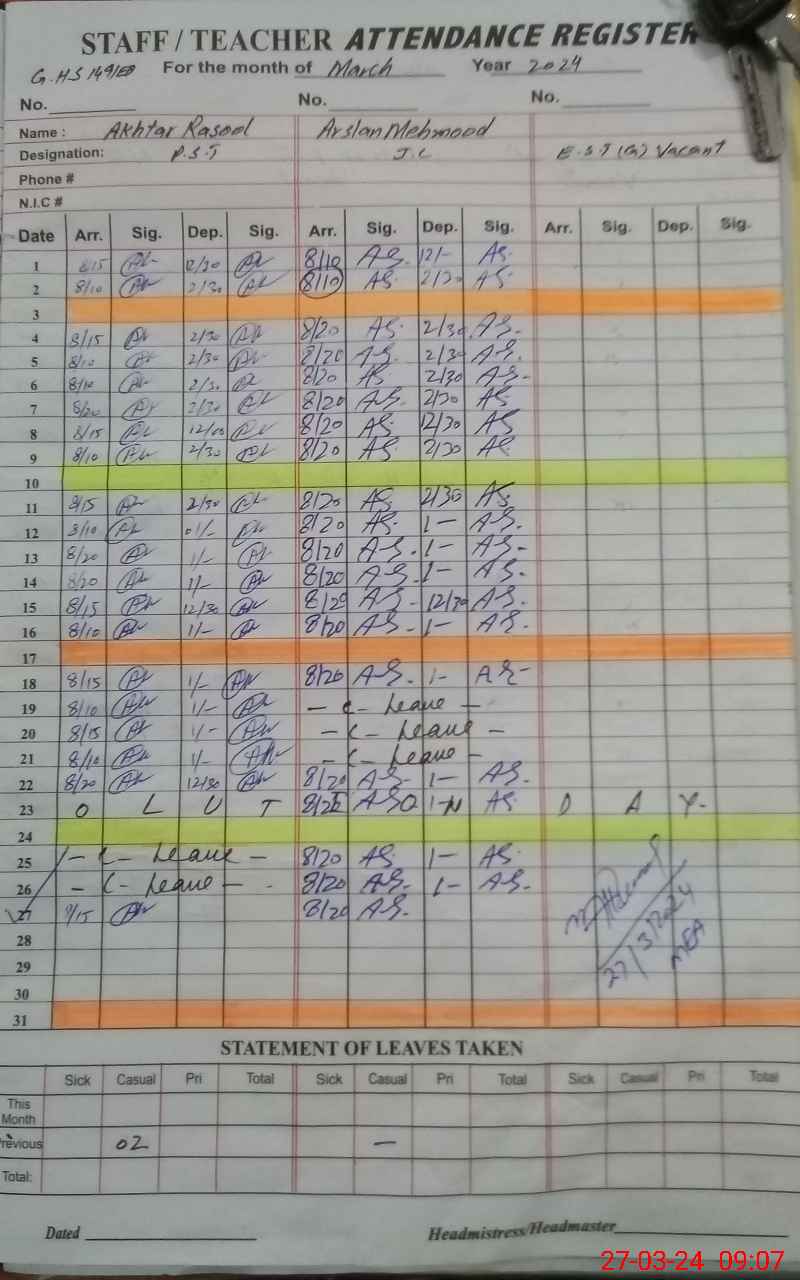 STAFF / TEACHER ATTENDANCE REGISTER
G.H.S 149/EB For the month of March Year 2024
No. No. No.
Name : Akhtar Rasool Arslan Mehmood
Designation: P.S.T J.C E.S.T (G) Vacant
Phone #
N.I.C #
Date Arr. Sig. Dep. Sig. Arr. Sig. Dep. Sig. Arr. Sig. Dep. Sig.
1 8/15 12/30 8/10 AS. 12/- AS.
2 8/10 2/30 8/10 AS. 2/30 AS.
3
4 8/15 2/30 8/20 AS. 2/30 AS.
5 8/10 2/30 8/20 AS. 2/30 AS.
6 8/10 2/30 8/20 AS 2/30 AS.
7 8/20 2/30 8/20 AS. 2/30 AS.
8 8/15 12/00 8/20 AS. 12/30 AS
9 8/10 2/30 8/20 AS. 2/30 AS.
10
11 8/15 2/30 8/20 AS. 2/30 AS.
12 8/10 01/- 8/20 AS. 1- AS.
13 8/20 1/- 8/20 AS. 1- AS.
14 8/20 1/- 8/20 AS. 1- AS.
15 8/15 12/30 8/20 AS. 12/30 AS.
16 8/10 1/- 8/20 AS. 1- AS.
17
18 8/15 1/- 8/20 AS. 1- AS
19 8/10 1/- - C - Leave -
20 8/15 1/- - C - Leave -
21 8/10 1/- - C - Leave -
22 8/20 12/30 8/20 AS. 1- AS.
23 O L U T 8/25 AS O 1-N AS. D A Y-
24
25 - C - Leave - 8/20 AS. 1- AS.
26 - C - Leave - 8/20 AS. 1- AS.
27 9/15 8/20 AS.
27/3/2024
MEA
28
29
30
31
STATEMENT OF LEAVES TAKEN
Sick Casual Pri Total Sick Casual Pri Total Sick Casual Pri Total
This
Month
Previous 02 —
Total:
Dated Headmistress/Headmaster
27-03-24 09:07